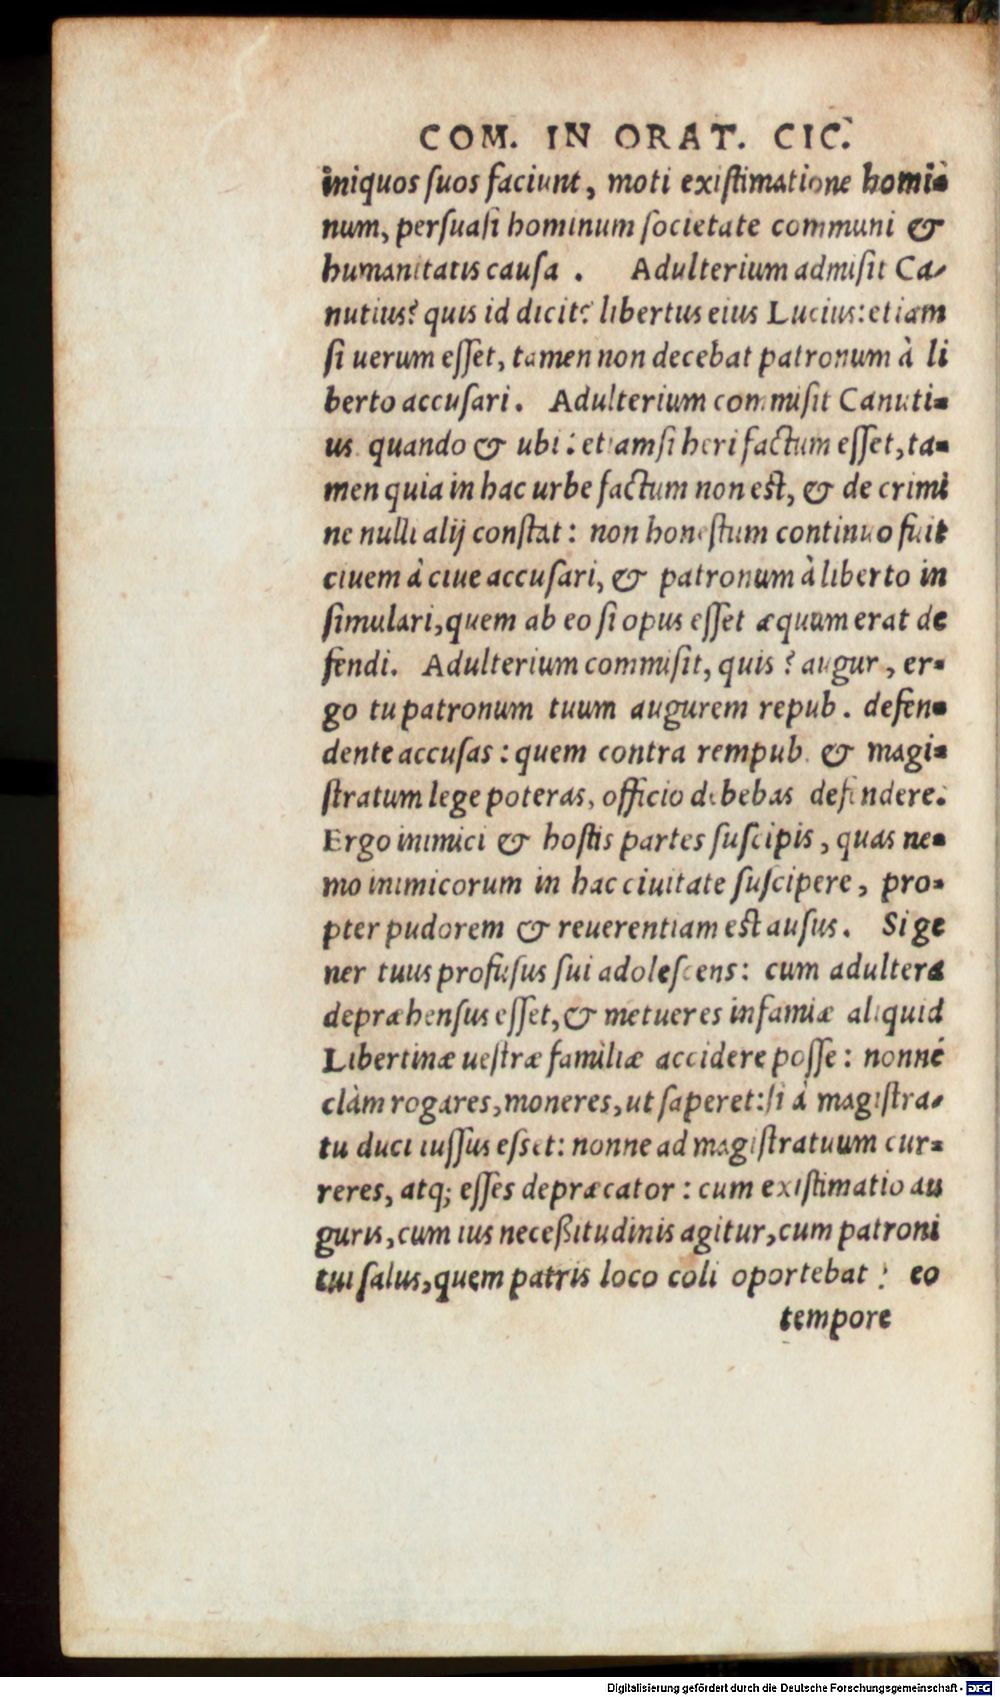 COM. IN ORAT. CIC.
iniquos ſuos faciunt, moti exiſtimatione homi-
num, perſuaſi hominum ſocietate communi &
humanitatis cauſa. Adulterium admiſit Ca-
nutius? quis id dicit? libertus eius Lucius: etiam
ſi uerum eſſet, tamen non decebat patronum à li
berto accuſari. Adulterium commiſit Canuti-
us quando & ubi: etiamſi heri factum eſſet, ta-
men quia in hac urbe factum non eſt, & de crimi
ne nulli alij conſtat: non honeſtum continuo fuit
ciuem à ciue accuſari, & patronum à liberto in
ſimulari, quem ab eo ſi opus eſſet æquum erat de
fendi. Adulterium commiſit, quis? augur, er-
go tu patronum tuum augurem repub. defen-
dente accuſas: quem contra rempub. & magi-
ſtratum lege poteras, officio debebas defendere.
Ergo inimici & hoſtis partes ſuſcipis, quas ne-
mo inimicorum in hac ciuitate ſuſcipere, pro-
pter pudorem & reuerentiam eſt auſus. Si ge
ner tuus profuſus ſui adoleſcens: cum adultera
depræhenſus eſſet, & metueres infamiæ aliquid
Libertinæ ueſtræ familiæ accidere poſſe: nonné
clàm rogares, moneres, ut ſaperet: ſi à magiſtra-
tu duci iuſſus eſset: nonne ad magiſtratuum cur-
reres, atq; eſſes depræcator: cum exiſtimatio au
guris, cum ius neceßitudinis agitur, cum patroni
tui ſalus, quem patris loco coli oportebat? eo
tempore
Digitalisierung gefördert durch die Deutsche Forschungsgemeinschaft - DFG